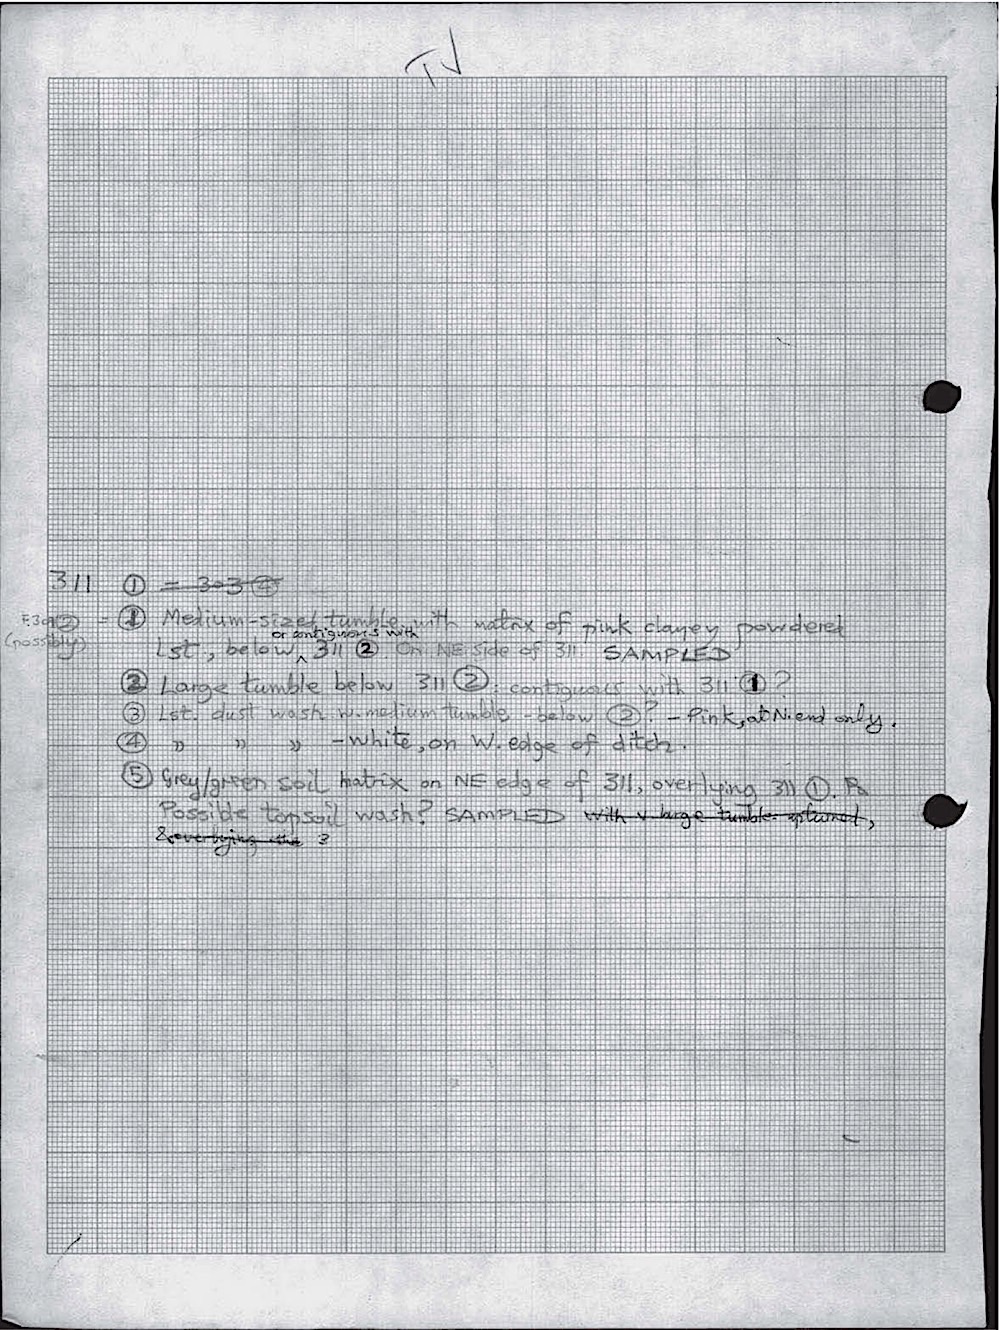 TJ
311 ① = 303 ④
F.309② = ① Medium-sized tumble with matrix of pink clayey powdered
(possibly) Lst, below or contiguous with 311 ②. On NE side of 311. SAMPLED
② Large tumble below 311 ②. contiguous with 311 ①?
③ Lst. dust wash w. medium tumble - below ②? - Pink, at N. end only.
④ " " " - white, on W. edge of ditch.
⑤ Grey/green soil matrix on NE edge of 311, overlying 311 ①.
Possible topsoil wash? SAMPLED with v large tumble upturned,
& overlying the 3